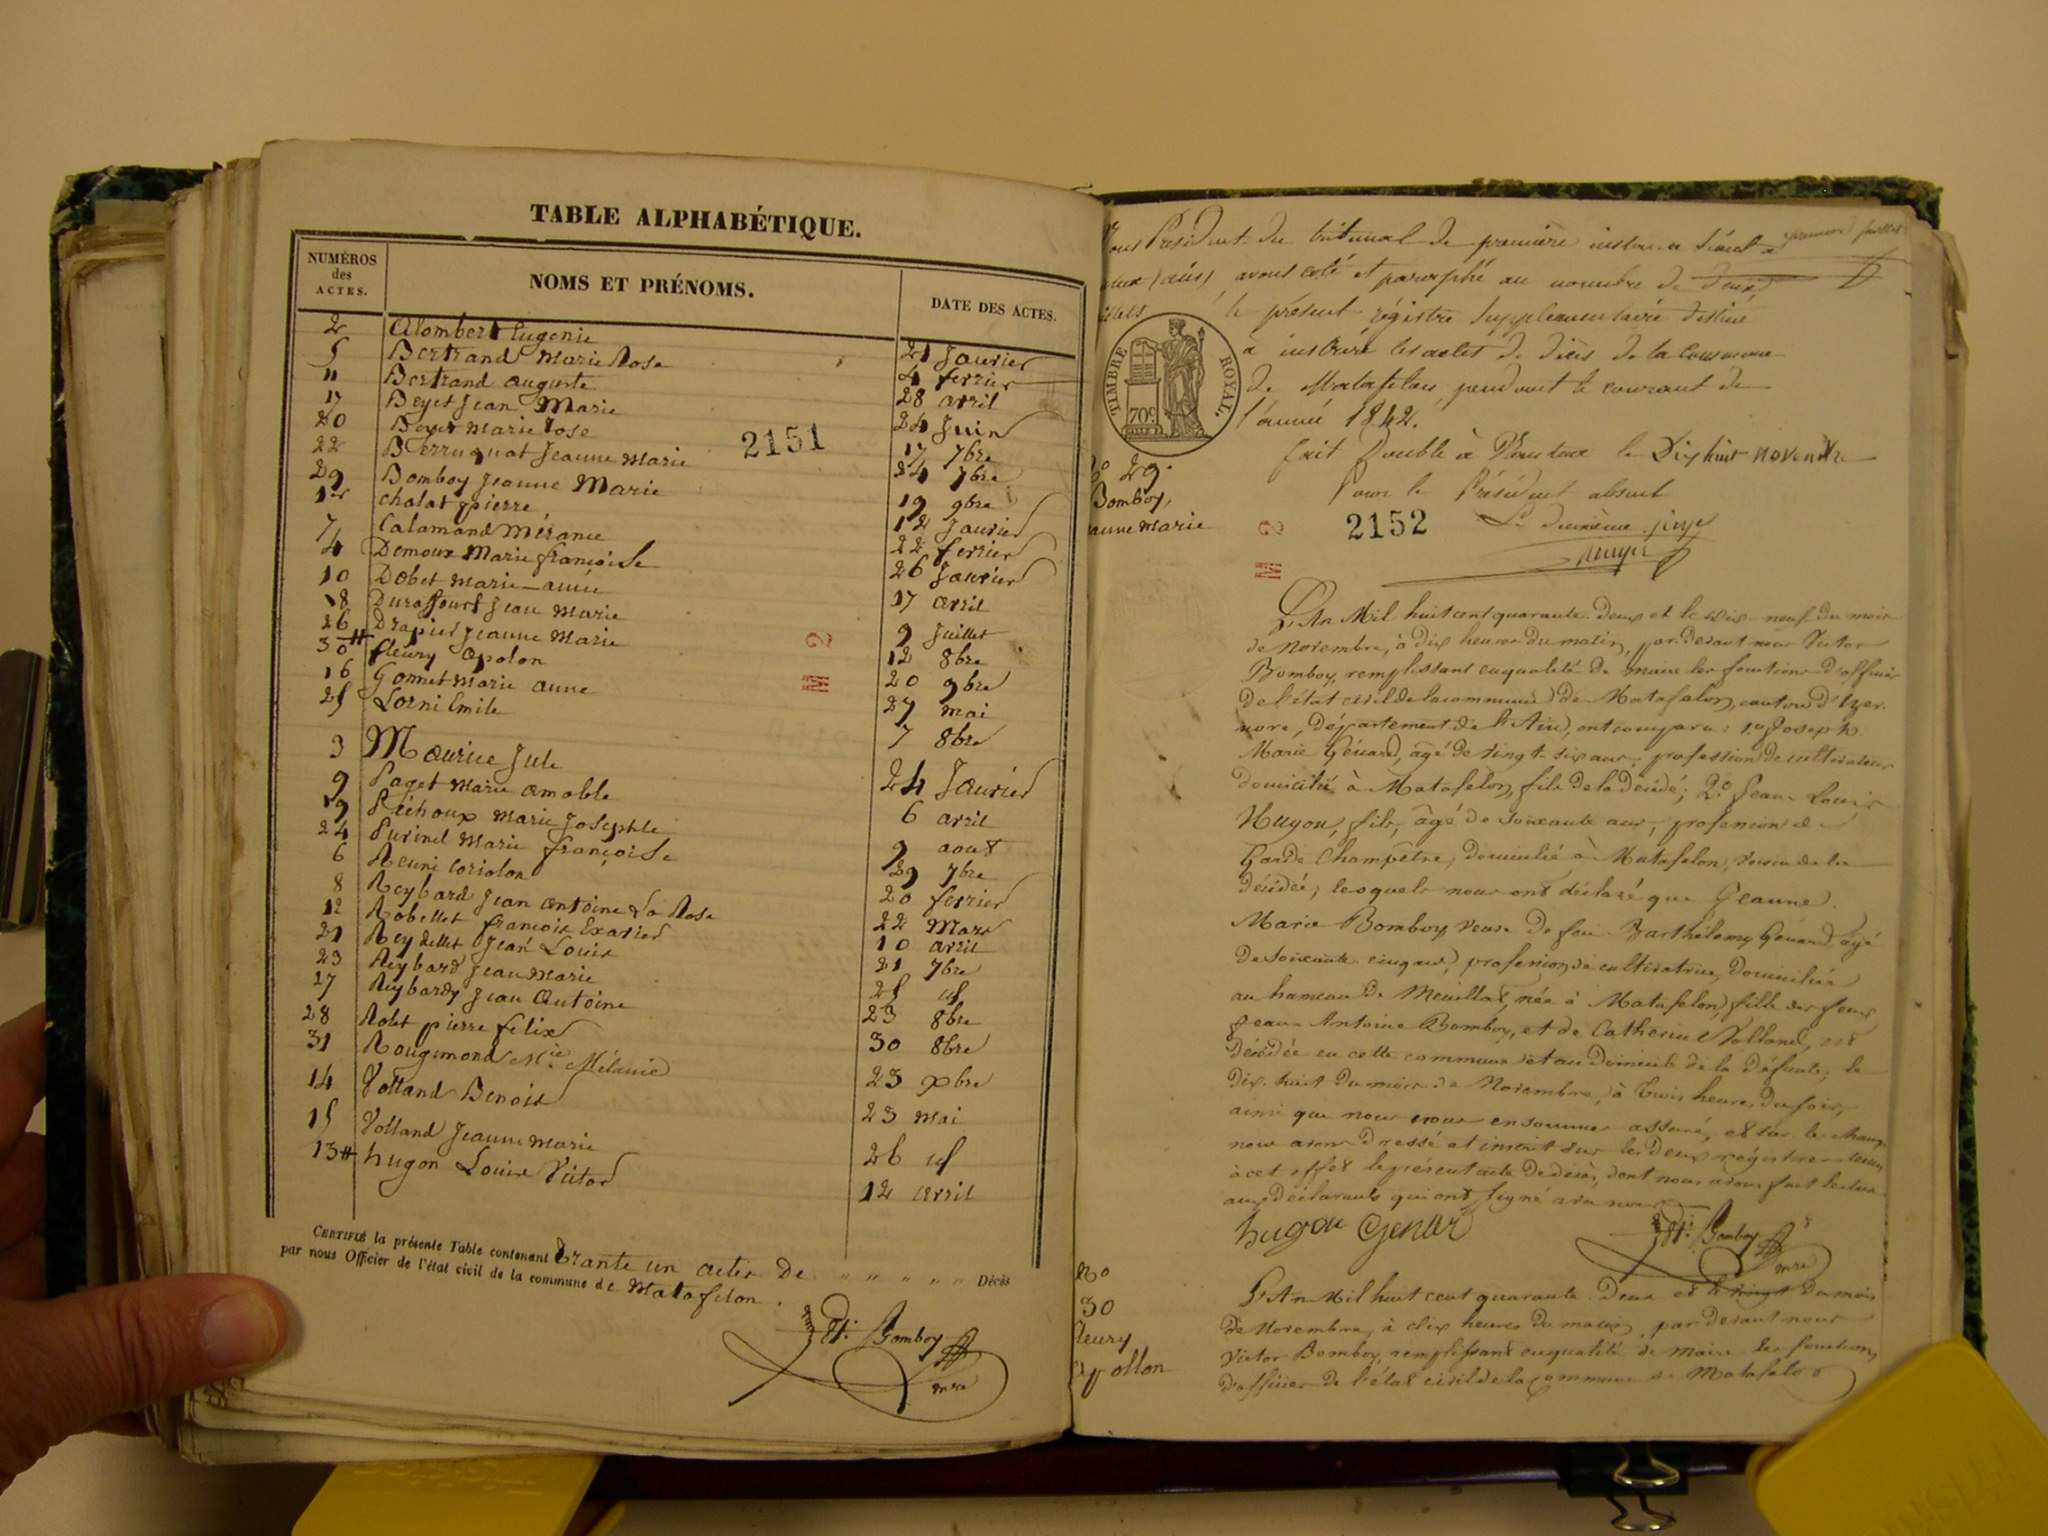 TABLE ALPHABÉTIQUE.
NUMÉROS des ACTES. NOMS ET PRÉNOMS. DATE DES ACTES.
2 Alombert Eugenie 21 Janvier
5 Bertrand Marie Rose 4 fevrier
11 Bertrand auguste 28 avril
17 Beyet Jean Marie 24 Juin
20 Beyet Marie Rose 17 7bre
22 Berruquat Jeanne Marie 24 7bre
29 Bomboy Jeanne Marie 19 9bre
1er chalat pierre 12 Janvier
7 Calamand Méranie 22 fevrier
4 Demoux Marie françoise 26 Janvier
10 Dobet Marie-anne 17 avril
18 Duraffourt Jean Marie 9 Juillet
26 Drapier Jeanne Marie 12 8bre
30 # fleury apolon 20 9bre
16 Gonnet Marie anne 27 mai
25 Lorni Emile 7 8bre
3 Maurice Jule 24 Janvier
9 Paget Marie amable 6 avril
19 Péchoux Marie Josephte 9 aout
24 Puvinel Marie françoise 29 7bre
6 Reuni Coriolon 20 fevrier
8 Reybard Jean antoine La Rose 22 Mars
12 Robellet françois Exavier 10 avril
21 Reydellet Jean Louis 21 7bre
23 Reybard Jean Marie 25 id
27 Reybard Jean Antoine 23 8bre
28 Rolet pierre felix 30 8bre
31 Rougemond Mie Mélanie 23 xbre
14 Volland Benoit 23 mai
15 Volland Jeanne Marie 26 id
13 # hugon Louis Victor 12 avril
2151
CERTIFIÉ la présente Table contenant trante un actes de " " " " " Décès
par nous Officier de l'état civil de la commune de Matafelon.
Vt. Bomboy
mre
premier feuillet
Nous Président du tribunal de première instance séant à
avons coté et paraphé au nombre de Deux
le présent régistre supplémentaire destiné
à inscrire les actes de décès de la Commune
de Matafelon, pendant le courant de
l'année 1842.
fait Double à Nantua le Dix huit novembre
Pour le Président absent
Le deuxième juge
TIMBRE ROYAL.
70c
2152
No 29.
Bomboy,
Jeanne Marie
L'An Mil huit cent quarante. Deux et le dix-neuf du mois
de Novembre, à dix heures du matin, par devant nous Victor
Bomboy, remplissant en qualité de maire les fonctions d'officier
de l'état civil de la commune de Matafelon, canton d'Izer-
nore, Département de l'Ain, ont comparu : 1o Joseph.
Marie Génard, âgé de vingt-six ans, profession de cultivateur
domicilié à Matafelon, fils de la décédé; 2o Jean Louis
Hugon, fils, âgé de soixante ans, profession de
Garde Champêtre, domicilié à Matafelon, voisin de la
décédée; lesquels nous ont déclaré que Jeanne.
Marie Bomboy veuve de feu Barthélemy Génard, âgé
de soixante cinq ans, profession de cultivatrice, domiciliée
au hameau de Meuillat, née à Matafelon, fille des feus
Jean-Antoine Bomboy, et de Catherine Volland, est
décédée en cette commune et au Domicile de la défunte; le
dix-huit du mois de Novembre, à trois heures du soir,
ainsi que nous nous en sommes assuré, et sur le champ
nous avons dressé et inscrit sur les deux régistres tenus
à cet effet le présent acte de décès, dont nous avons fait lecture
aux déclarants qui ont signé avec nous
hugon Genar
Vt. Bomboy
mre
No
30
fleury
apollon
L'An Mil huit cent quarante. Deux et le vingt du mois
de Novembre, à dix heures du matin, par devant nous
Victor Bomboy, remplissant en qualité de maire les fonctions
d'officier de l'état civil de la commune de Matafelon